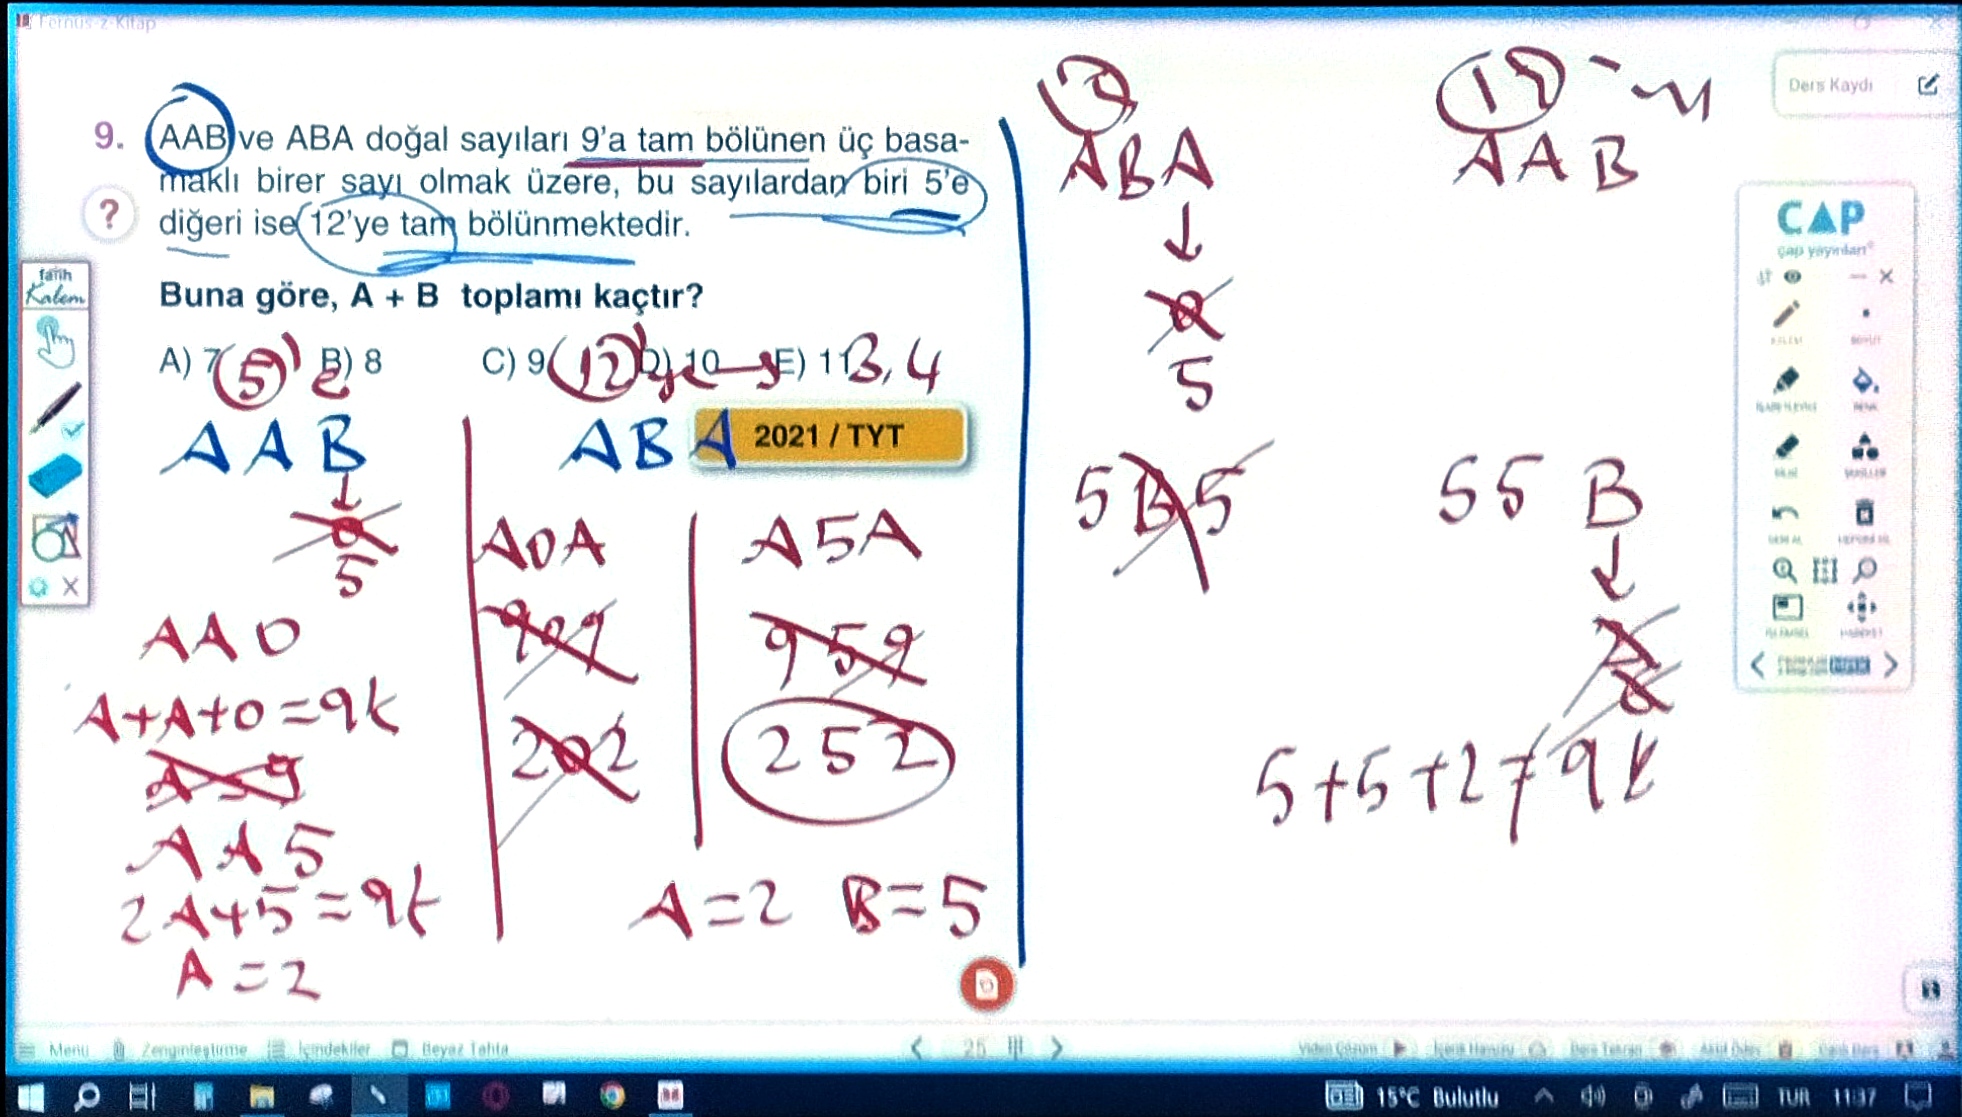 Fernus-z-Kitap
9. AAB ve ABA doğal sayıları 9'a tam bölünen üç basa-
maklı birer sayı olmak üzere, bu sayılardan biri 5'e
diğeri ise 12'ye tam bölünmektedir.
Buna göre, A + B toplamı kaçtır?
A) 7 B) 8 C) 9 D) 10 E) 11
5 12 3, 4
2021 / TYT
?
fatih
Kalem
AAB
0
5
AA0
A+A+0=9k
A=9
AA5
2A+5=9k
A=2
ABA
A0A
909
202
A5A
959
252
A=2 B=5
ABA
0
5
5B5
AAB
55B
2
5+5+2≠9k
Ders Kaydı
CAP
çap yayınları
Menü Zenginleştirme İçindekiler Beyaz Tahta
25
Video Çözüm
15°C Bulutlu
TUR 11:37